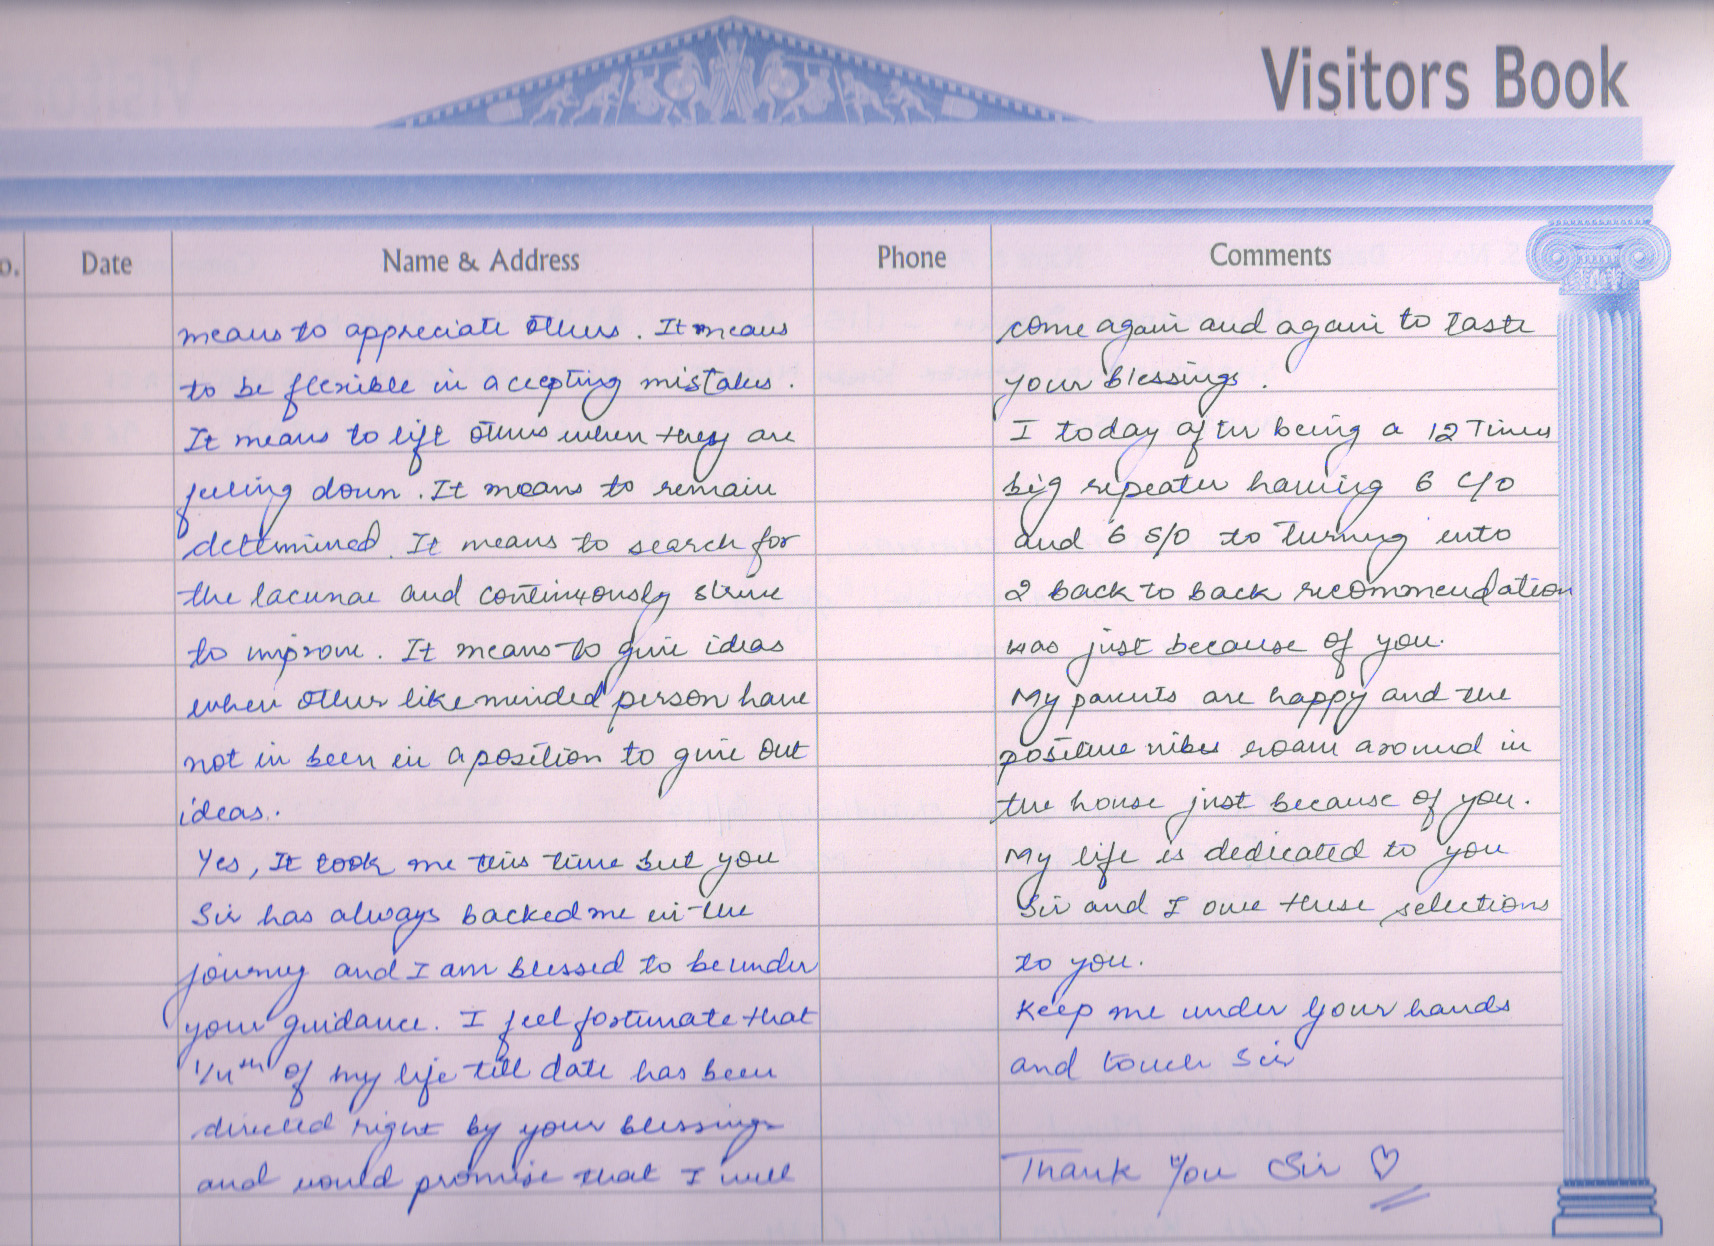 Visitors Book
o. Date Name & Address Phone Comments
means to appreciate others. It means
to be flexible in accepting mistakes.
It means to lift others when they are
feeling down. It means to remain
determined. It means to search for
the lacunae and continuously strive
to improve. It means to give ideas
when other like minded person have
not in been in a position to give out
ideas.
Yes, It took me this time but you
Sir has always backed me in the
journey and I am blessed to be under
your guidance. I feel fortunate that
1/4th of my life till date has been
directed right by your blessings
and would promise that I will
come again and again to taste
your blessings.
I today after being a 12 Times
big repeater having 6 C/O
and 6 S/O to turning into
2 back to back recommendation
was just because of you.
My parents are happy and the
positive vibes roam around in
the house just because of you.
My life is dedicated to you
Sir and I owe these selections
to you.
Keep me under your hands
and touch Sir
Thank You Sir ♡